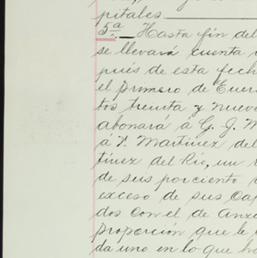 pitales
5ª Hasta fin del
se llevará cuenta
pués de esta fech
el primero de Ener
tos treinta y nueve
abonará á G. J. M
á V. Martinez del
tinez del Rio, un
de sus porciento
exceso de sus Cap
dos con el de Anz
proporcion que le
da uno en lo que ha